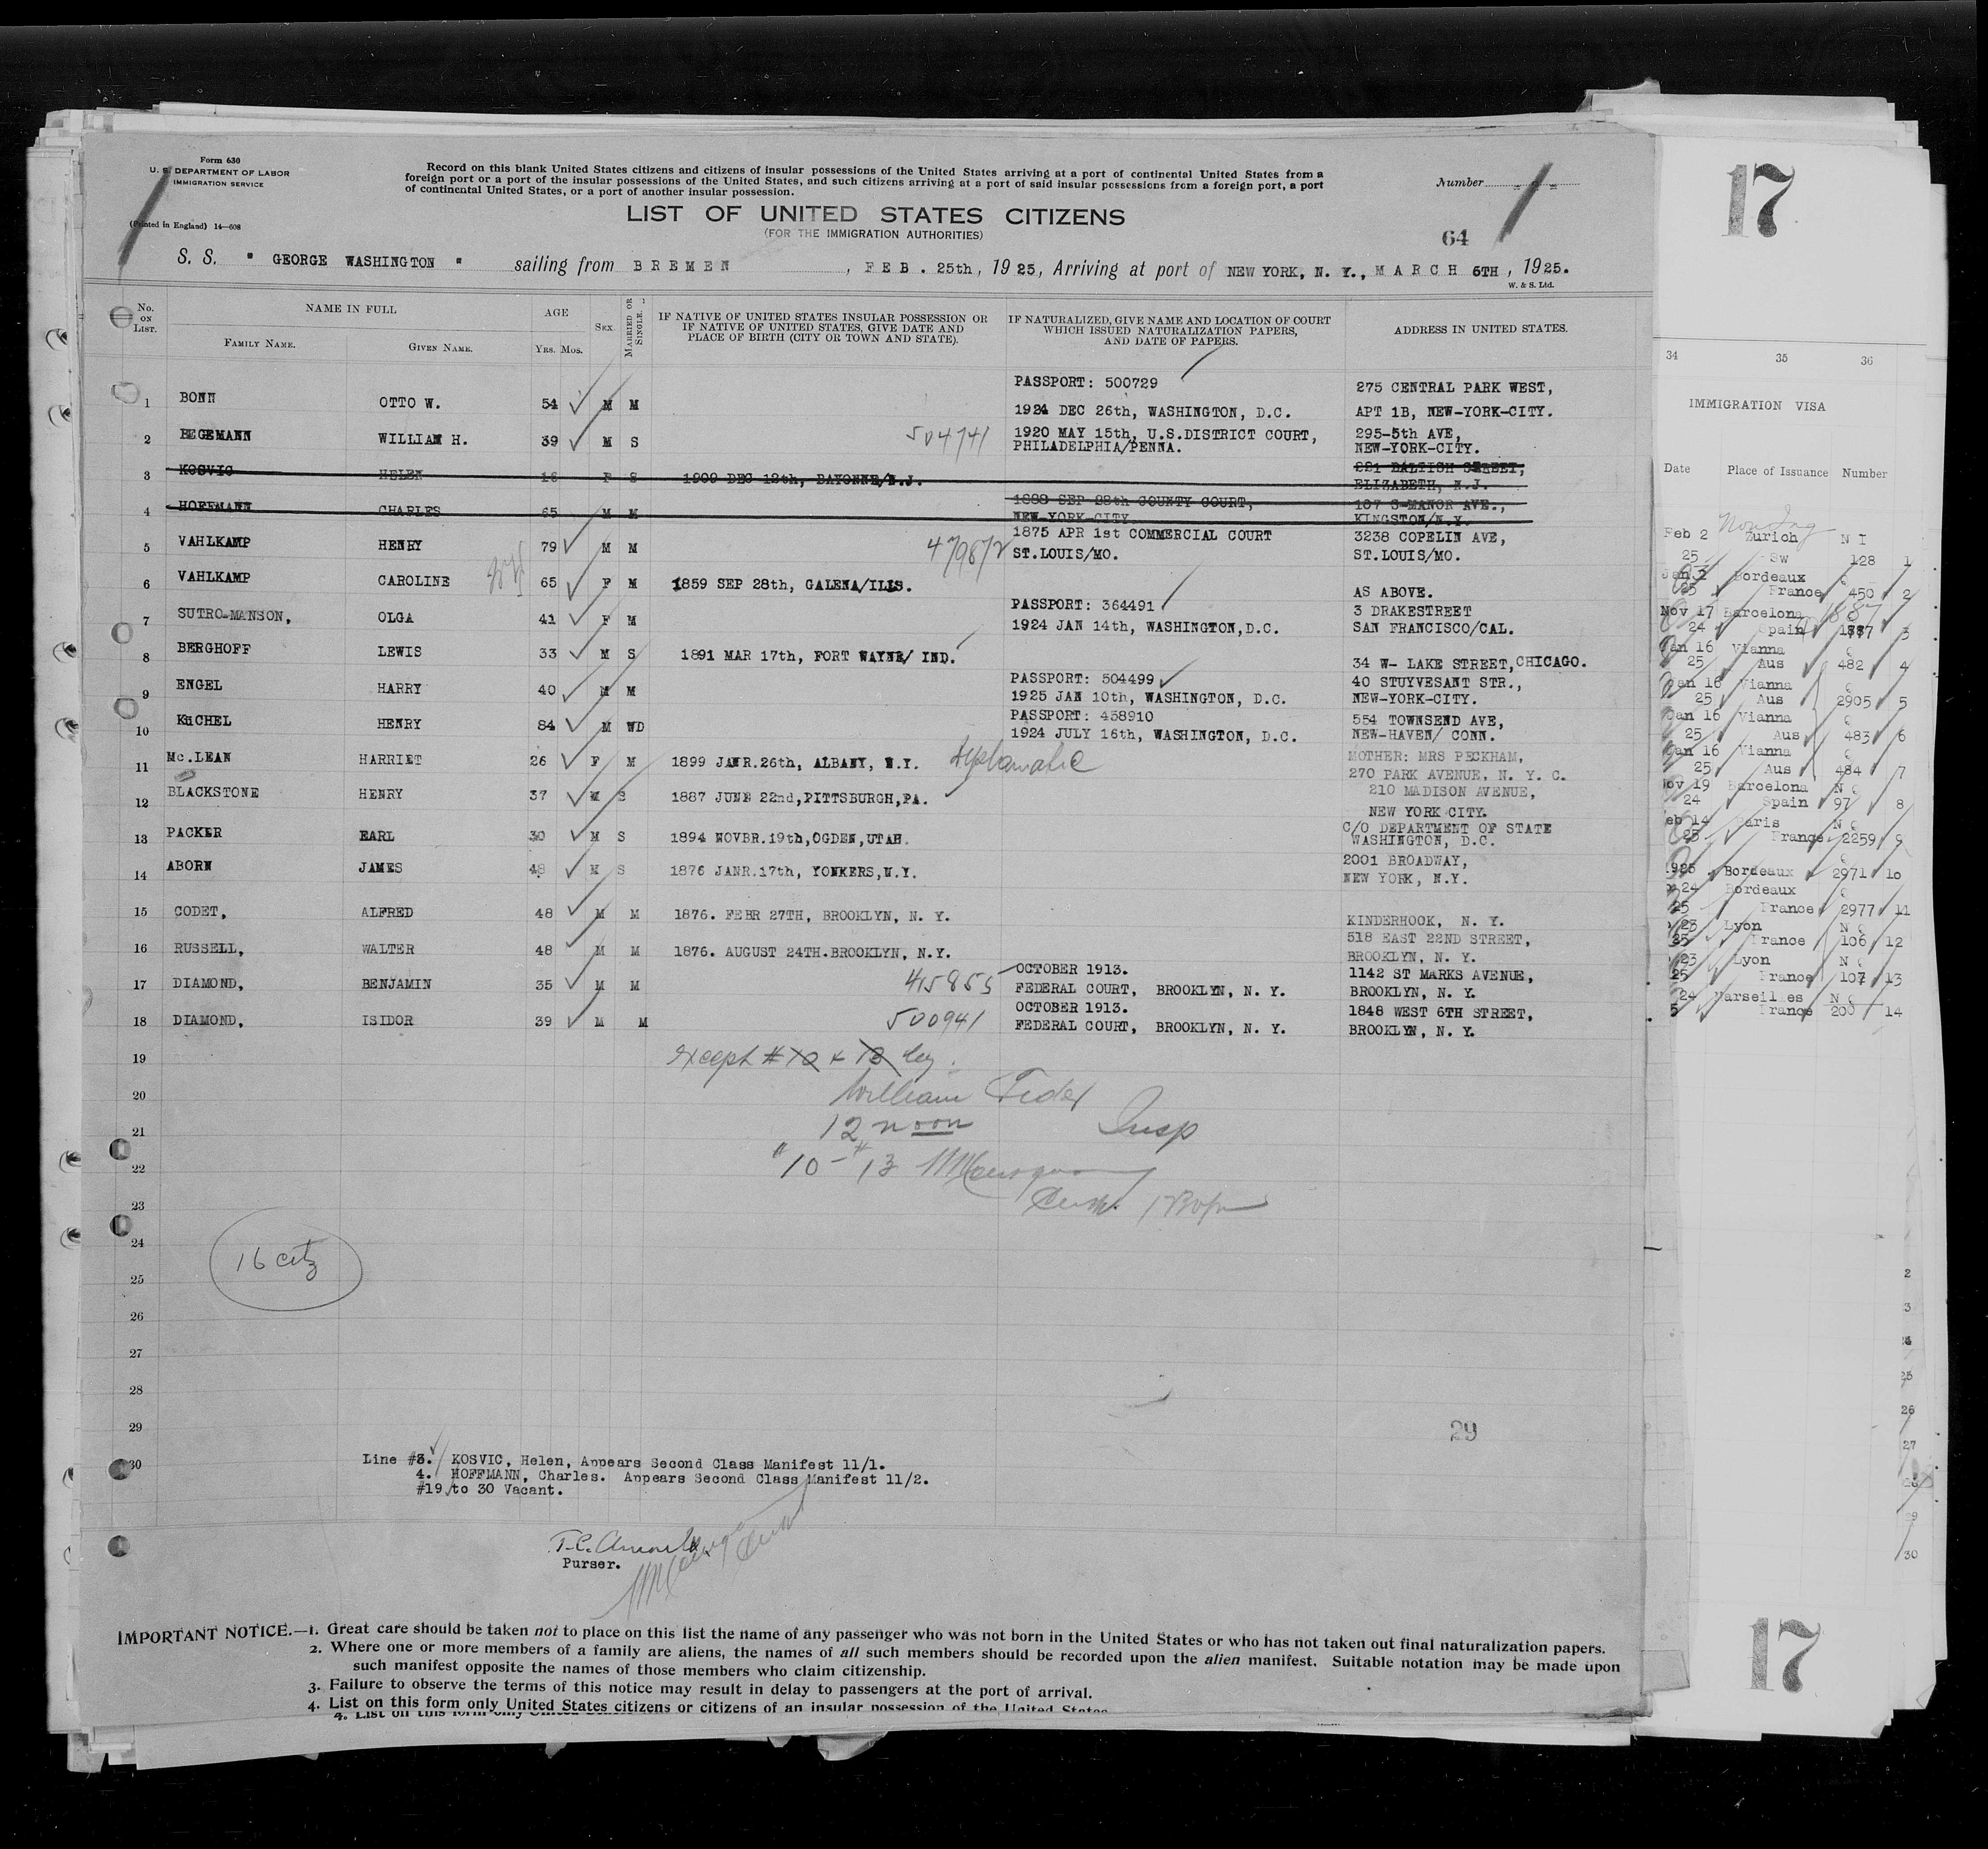 Form 630
U. S. DEPARTMENT OF LABOR
IMMIGRATION SERVICE
(Printed in England) 14—608
Record on this blank United States citizens and citizens of insular possessions of the United States arriving at a port of continental United States from a
foreign port or a port of the insular possessions of the United States, and such citizens arriving at a port of said insular possessions from a foreign port, a port
of continental United States, or a port of another insular possession.
Number
LIST OF UNITED STATES CITIZENS
(FOR THE IMMIGRATION AUTHORITIES)
64
S. S. " GEORGE WASHINGTON " sailing from BREMEN, FEB. 25th, 1925, Arriving at port of NEW YORK, N. Y., MARCH 6TH, 1925.
W. & S. Ltd.
No. ON LIST. NAME IN FULL AGE SEX. MARRIED OR SINGLE. IF NATIVE OF UNITED STATES INSULAR POSSESSION OR IF NATIVE OF UNITED STATES, GIVE DATE AND PLACE OF BIRTH (CITY OR TOWN AND STATE). IF NATURALIZED, GIVE NAME AND LOCATION OF COURT WHICH ISSUED NATURALIZATION PAPERS, AND DATE OF PAPERS. ADDRESS IN UNITED STATES.
FAMILY NAME. GIVEN NAME. YRS. MOS.
1 BONN OTTO W. 54 M M PASSPORT: 500729 1924 DEC 26th, WASHINGTON, D.C. 275 CENTRAL PARK WEST, APT 1B, NEW-YORK-CITY.
2 BEGEMANN WILLIAM H. 39 M S 504741 1920 MAY 15th, U.S.DISTRICT COURT, PHILADELPHIA/PENNA. 295-5th AVE, NEW-YORK-CITY.
3 KOSVIC HELEN 16 F S 1909 DEC 12th, BAYONNE/N.J. 221 BALTICH STREET, ELIZABETH, N.J.
4 HOFFMANN CHARLES 65 M M 1888 SEP 28th COUNTY COURT, NEW-YORK-CITY 107 S-MANOR AVE., KINGSTON/N.Y.
5 VAHLKAMP HENRY 79 M M 479872 1875 APR 1st COMMERCIAL COURT ST.LOUIS/MO. 3238 COPELIN AVE, ST.LOUIS/MO.
6 VAHLKAMP CAROLINE 65 F M 1859 SEP 28th, GALENA/ILLS. AS ABOVE.
7 SUTRO-MANSON, OLGA 41 F M PASSPORT: 364491 1924 JAN 14th, WASHINGTON,D.C. 3 DRAKESTREET SAN FRANCISCO/CAL.
8 BERGHOFF LEWIS 33 M S 1891 MAR 17th, FORT WAYNE/ IND. 34 W- LAKE STREET,CHICAGO.
9 ENGEL HARRY 40 M M PASSPORT: 504499 1925 JAN 10th, WASHINGTON, D.C. 40 STUYVESANT STR., NEW-YORK-CITY.
10 KüCHEL HENRY 84 M WD PASSPORT: 458910 1924 JULY 16th, WASHINGTON, D.C. 554 TOWNSEND AVE, NEW-HAVEN/ CONN.
11 Mc.LEAN HARRIET 26 F M 1899 JANR.26th, ALBANY, N.Y. diplomatic MOTHER: MRS PECKHAM, 270 PARK AVENUE, N. Y. C.
12 BLACKSTONE HENRY 37 M S 1887 JUNE 22nd,PITTSBURGH,PA. 210 MADISON AVENUE, NEW YORK CITY.
13 PACKER EARL 30 M S 1894 NOVBR.19th,OGDEN,UTAH. C/O DEPARTMENT OF STATE WASHINGTON, D.C.
14 ABORN JAMES 48 M S 1876 JANR.17th, YONKERS,N.Y. 2001 BROADWAY, NEW YORK, N.Y.
15 CODET, ALFRED 48 M M 1876. FEBR 27TH, BROOKLYN, N. Y. KINDERHOOK, N. Y.
16 RUSSELL, WALTER 48 M M 1876. AUGUST 24TH.BROOKLYN, N.Y. 518 EAST 22ND STREET, BROOKLYN, N. Y.
17 DIAMOND, BENJAMIN 35 M M 415855 OCTOBER 1913. FEDERAL COURT, BROOKLYN, N. Y. 1142 ST MARKS AVENUE, BROOKLYN, N. Y.
18 DIAMOND, ISIDOR 39 M M 500941 OCTOBER 1913. FEDERAL COURT, BROOKLYN, N. Y. 1848 WEST 6TH STREET, BROOKLYN, N. Y.
19 except # 10 & 13
20 William
21 12 noon Insp
22 "10 - #13
23
24
16 citz
25
26
27
28
29
29
30
Line #3. KOSVIC, Helen, Appears Second Class Manifest 11/1.
4. HOFFMANN, Charles. Appears Second Class Manifest 11/2.
#19 to 30 Vacant.
Purser.
IMPORTANT NOTICE.—1. Great care should be taken not to place on this list the name of any passenger who was not born in the United States or who has not taken out final naturalization papers.
2. Where one or more members of a family are aliens, the names of all such members should be recorded upon the alien manifest. Suitable notation may be made upon
such manifest opposite the names of those members who claim citizenship.
3. Failure to observe the terms of this notice may result in delay to passengers at the port of arrival.
4. List on this form only United States citizens or citizens of an insular possession of the United States
17
34 35 36
IMMIGRATION VISA
Date Place of Issuance Number
Feb 2 Zurich N I
25 Sw 128 1
Jan 2 Bordeaux
25 France 450 2
Nov 17 Barcelona 1887
24 Spain 1887 3
Jan 16 Vianna
25 Aus 482 4
Jan 16 Vianna
25 Aus 2905 5
Jan 16 Vianna
25 Aus 483 6
Jan 16 Vianna
25 Aus 484 7
Nov 19 Barcelona N
24 Spain 97 8
eb 14 Paris N
25 France 2259 9
1925 Bordeaux 2971 10
24 Bordeaux
25 France 2977 11
23 Lyon N
25 France 106 12
23 Lyon N
25 France 107 13
24 Marseilles N
5 France 200 14
2
3
25
26
27
28
29
30
17